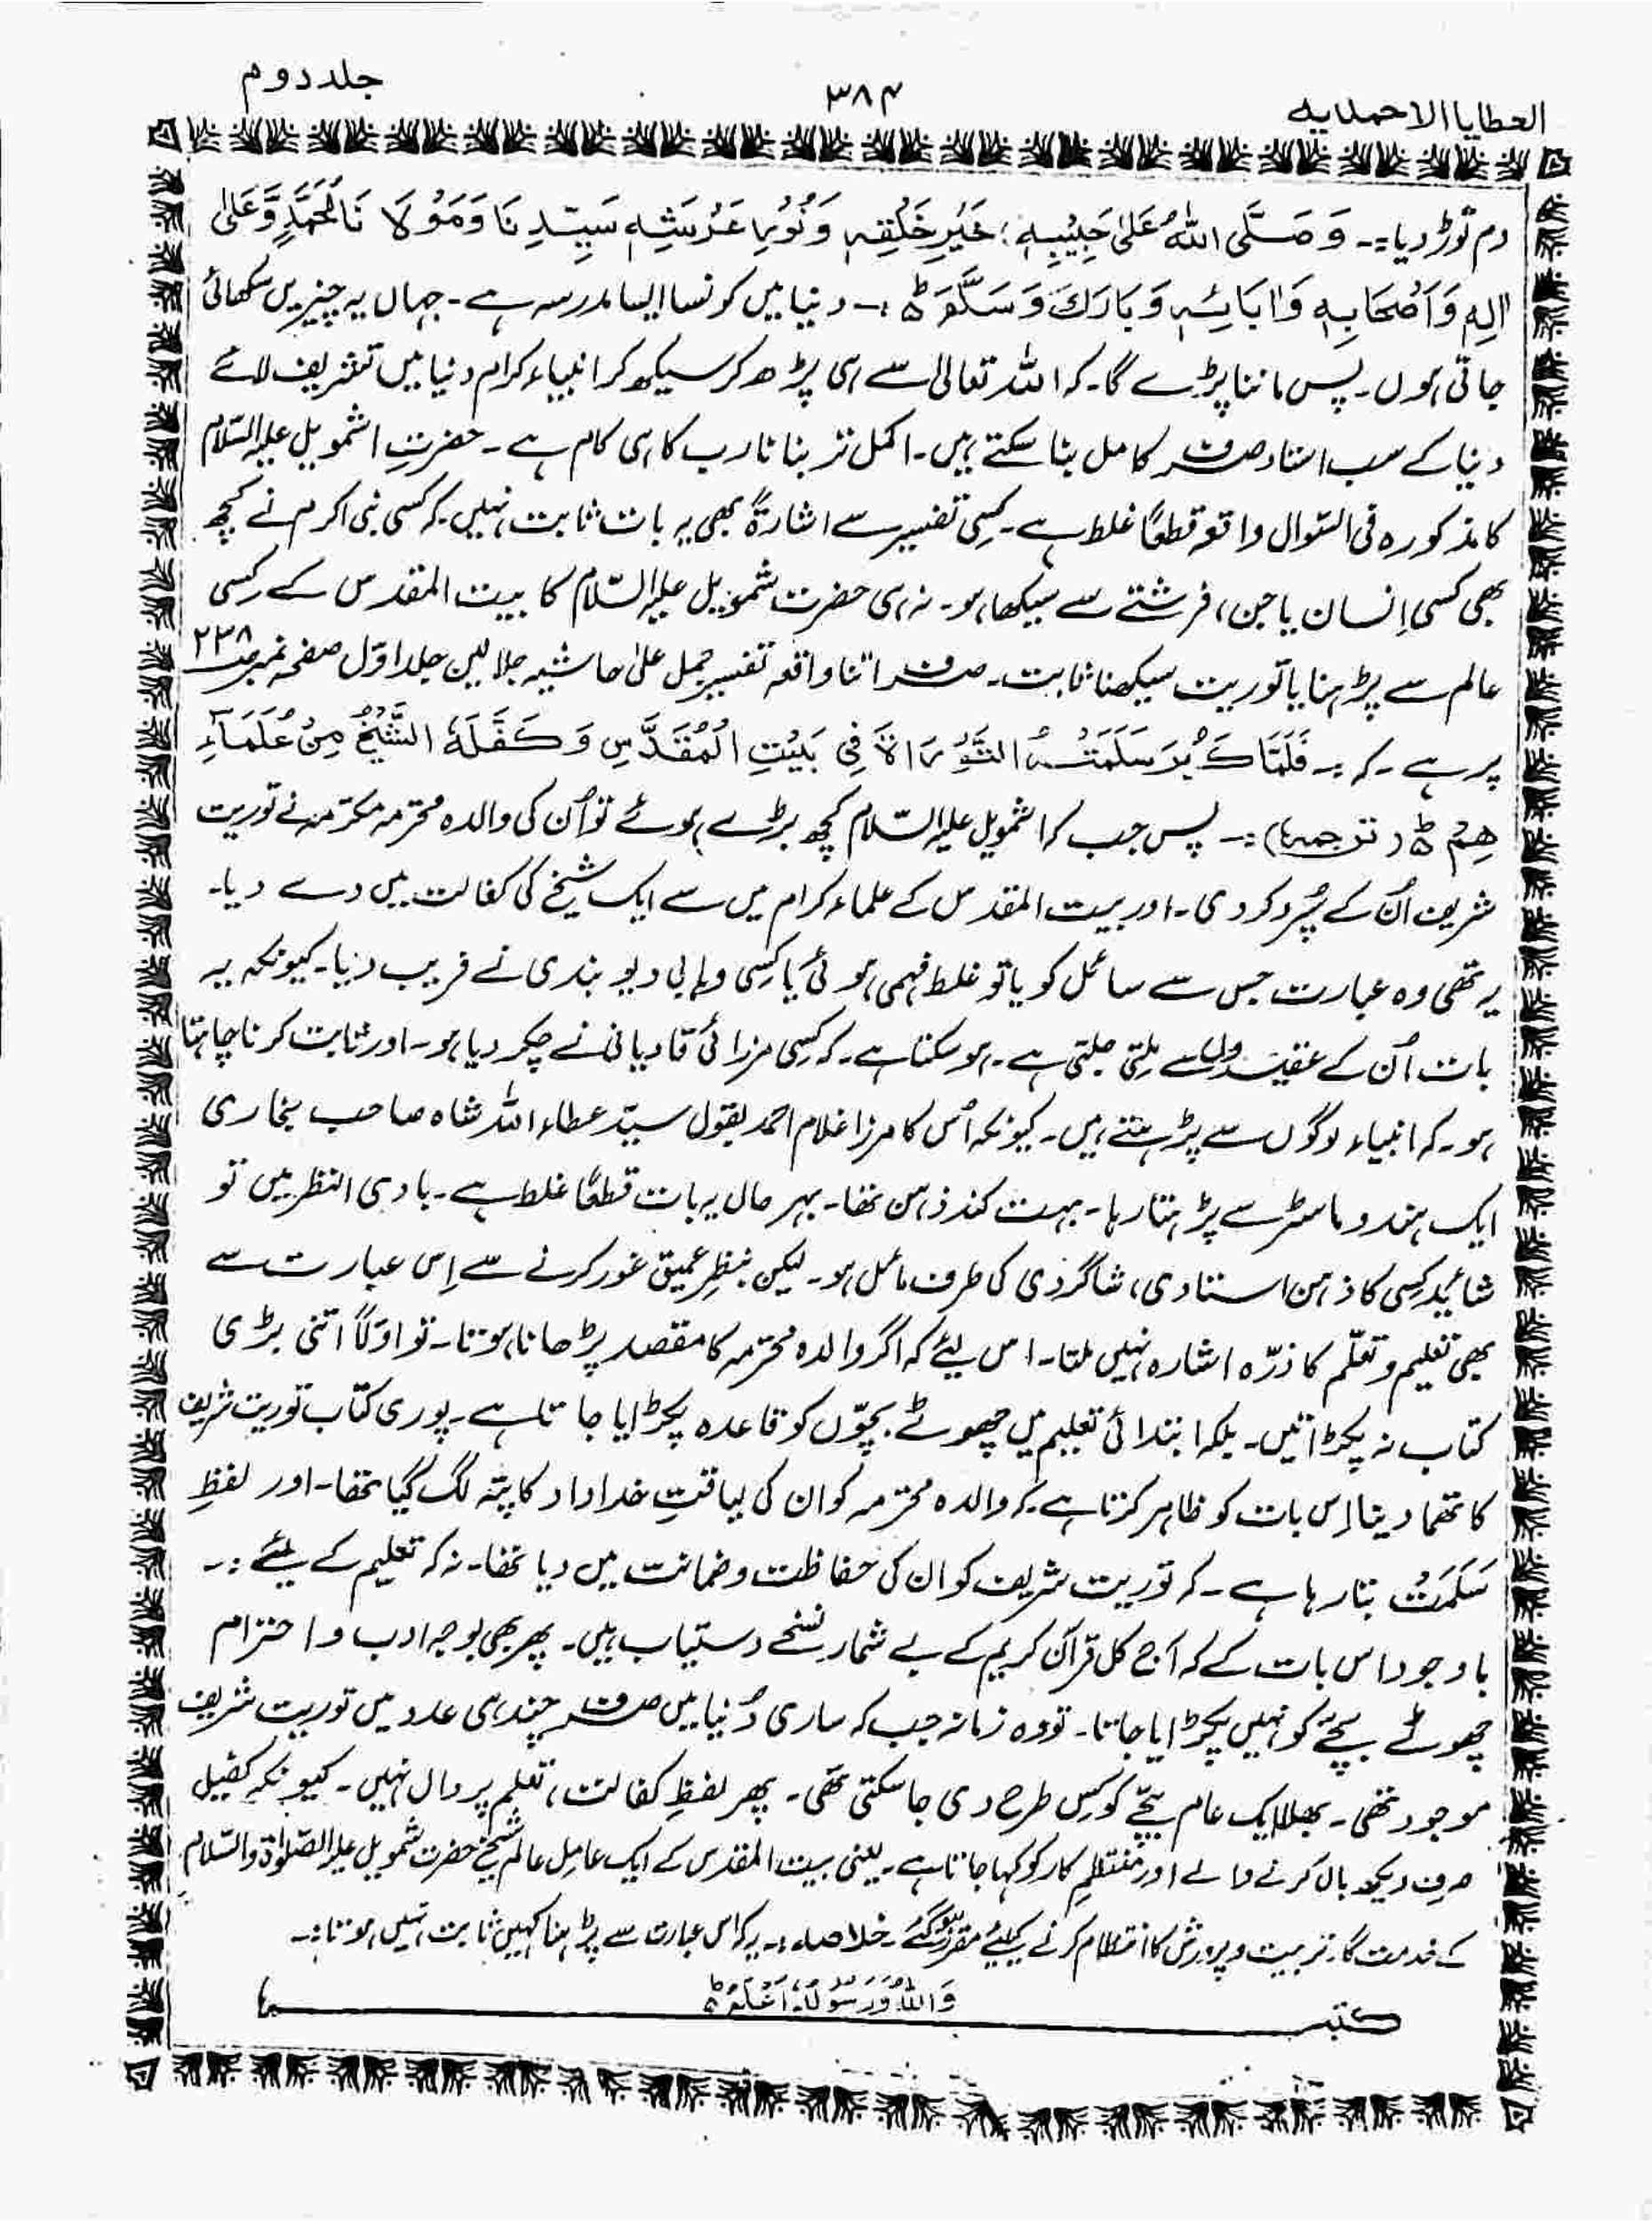 العطایا الاحمدیہ ۳۸۴ جلد دوم
دم توڑ دیا:۔ وَ صَلَّى اللهُ عَلٰى حَبِيْبِهٖ خَيْرِ خَلْقِهٖ وَنُوْرِ عَرْشِهٖ سَيِّدِنَا وَمَوْلَانَا مُحَمَّدٍ وَّعَلٰى
اٰلِهٖ وَاَصْحَابِهٖ وَاٰبَائِهٖ وَبَارَكَ وَسَلَّمَ ط :۔ دنیا میں کونسا ایسا مدرسہ ہے۔ جہاں یہ چیزیں سکھائی
جاتی ہوں۔ پس ماننا پڑے گا۔ کہ اللہ تعالٰی سے ہی پڑھ کر سیکھ کر انبیاء کرام دنیا میں تشریف لائے
دنیا کے سب استاد صرف کامل بنا سکتے ہیں۔ اکمل تر بنانا رب کا ہی کام ہے۔ حضرتِ اشمویل علیہ السّلام
کا مذکورہ فی السّوال واقعہ قطعًا غلط ہے۔ کِسی تفسیر سے اشارۃً بھی یہ بات ثابت نہیں۔ کہ کسی نبی اکرم نے کچھ
بھی کسی اِنسان یا جن، فرشتے سے سیکھا ہو۔ نہ ہی حضرت شمویل علیہ السّلام کا بیت المقدس کے کِسی
عالم سے پڑہنا یا توریت سیکھنا ثابت۔ صرف اتنا واقعہ تفسیر جمل علیٰ حاشیہ جلالین جلد اوّل صفحہ نمبر ۲۳۸
پر ہے۔ کہ :۔ فَلَمَّا كَبُرَ سَلَمَتْهُ التَّوْرَاةَ فِى بَيْتِ الْمُقَدَّسِ وَكَفَّلَهُ الشَّيْخُ مِنْ عُلَمَآءِ
هِمْ ط (ترجمہ):۔ پس جب کہ اشمویل علیہ السّلام کچھ بڑے ہوئے تو اُن کی والدہ محترمہ مکرّمہ نے توریت
شریف اُن کے سُپرد کر دی۔ اور بیت المقدس کے علماء کرام میں سے ایک شیخ کی کفالت میں دے دیا۔
یہ تھی وہ عبارت جس سے سائل کو یا تو غلط فہمی ہوئی یا کِسی وہابی دیو بندی نے فریب دیا۔ کیونکہ یہ
بات اُن کے عقیدوں سے مِلتی جلتی ہے۔ ہو سکتا ہے۔ کہ کِسی مرزائی قادیانی نے چکر دیا ہو۔ اور ثابت کرنا چاہتا
ہو۔ کہ انبیاء لوگوں سے پڑہتے ہیں۔ کیونکہ اُس کا مرزا غلام احمد بقول سیّد عطاء اللہ شاہ صاحب بخاری
ایک ہندو ماسٹر سے پڑہتا رہا۔ بہت کند ذہن تھا۔ بہر حال یہ بات قطعًا غلط ہے۔ بادی النظر میں تو
شائید کِسی کا ذہن استادی، شاگردی کی طرف مائل ہو۔ لیکن بنظرِ عمیق غور کرنے سے اِس عبارت سے
بھی تعلیم و تعلّم کا ذرّہ اشارہ نہیں ملتا۔ اس لیئے کہ اگر والدہ محترمہ کا مقصد پڑھانا ہوتا۔ تو اوّلاً اتنی بڑی
کتاب نہ پکڑاتیں۔ بلکہ ابتدائی تعلیم میں چھوٹے بچّوں کو قاعدہ پکڑایا جاتا ہے۔ پوری کتاب توریت شریف
کا تھما دینا اِس بات کو ظاہر کرتا ہے کہ والدہ محترمہ کو ان کی لیاقتِ خداداد کا پتہ لگ گیا تھا۔ اور لفظِ
سَلَمَتْ بتا رہا ہے۔ کہ توریت شریف کو ان کی حفاظت و ضمانت میں دیا تھا۔ نہ کہ تعلیم کے لیئے :۔
باوجود اس بات کے کہ آج کل قرآن کریم کے بے شمار نسخے دستیاب ہیں۔ پھر بھی بوجہ ادب و احترام
چھوٹے بچّے کو نہیں پکڑایا جاتا۔ تو وہ زمانہ جب کہ ساری دُنیا میں صرف چند ہی عدد میں توریت شریف
موجود تھی۔ بھلا ایک عام بچّے کو کِس طرح دی جا سکتی تھی۔ پھر لفظِ کفالت، تعلم پر دال نہیں۔ کیونکہ کفیل
صرف دیکھ بال کرنے والے اور منتظمِ کار کو کہا جاتا ہے۔ یعنی بیت المقدس کے ایک عامل عالم شیخ حضرت شمویل علیہ الصّلوٰۃ والسّلام
کے خدمت گار تربیت و پرورش کا انتظام کرنے کیلئے مقرر ہو گئے۔ خلاصہ:۔ یہ کہ اس عبارت سے پڑہنا کہیں ثابت نہیں ہوتا:۔
وَاللهُ وَرَسُوْلُهٗ اَعْلَمُ ط
کتبہ